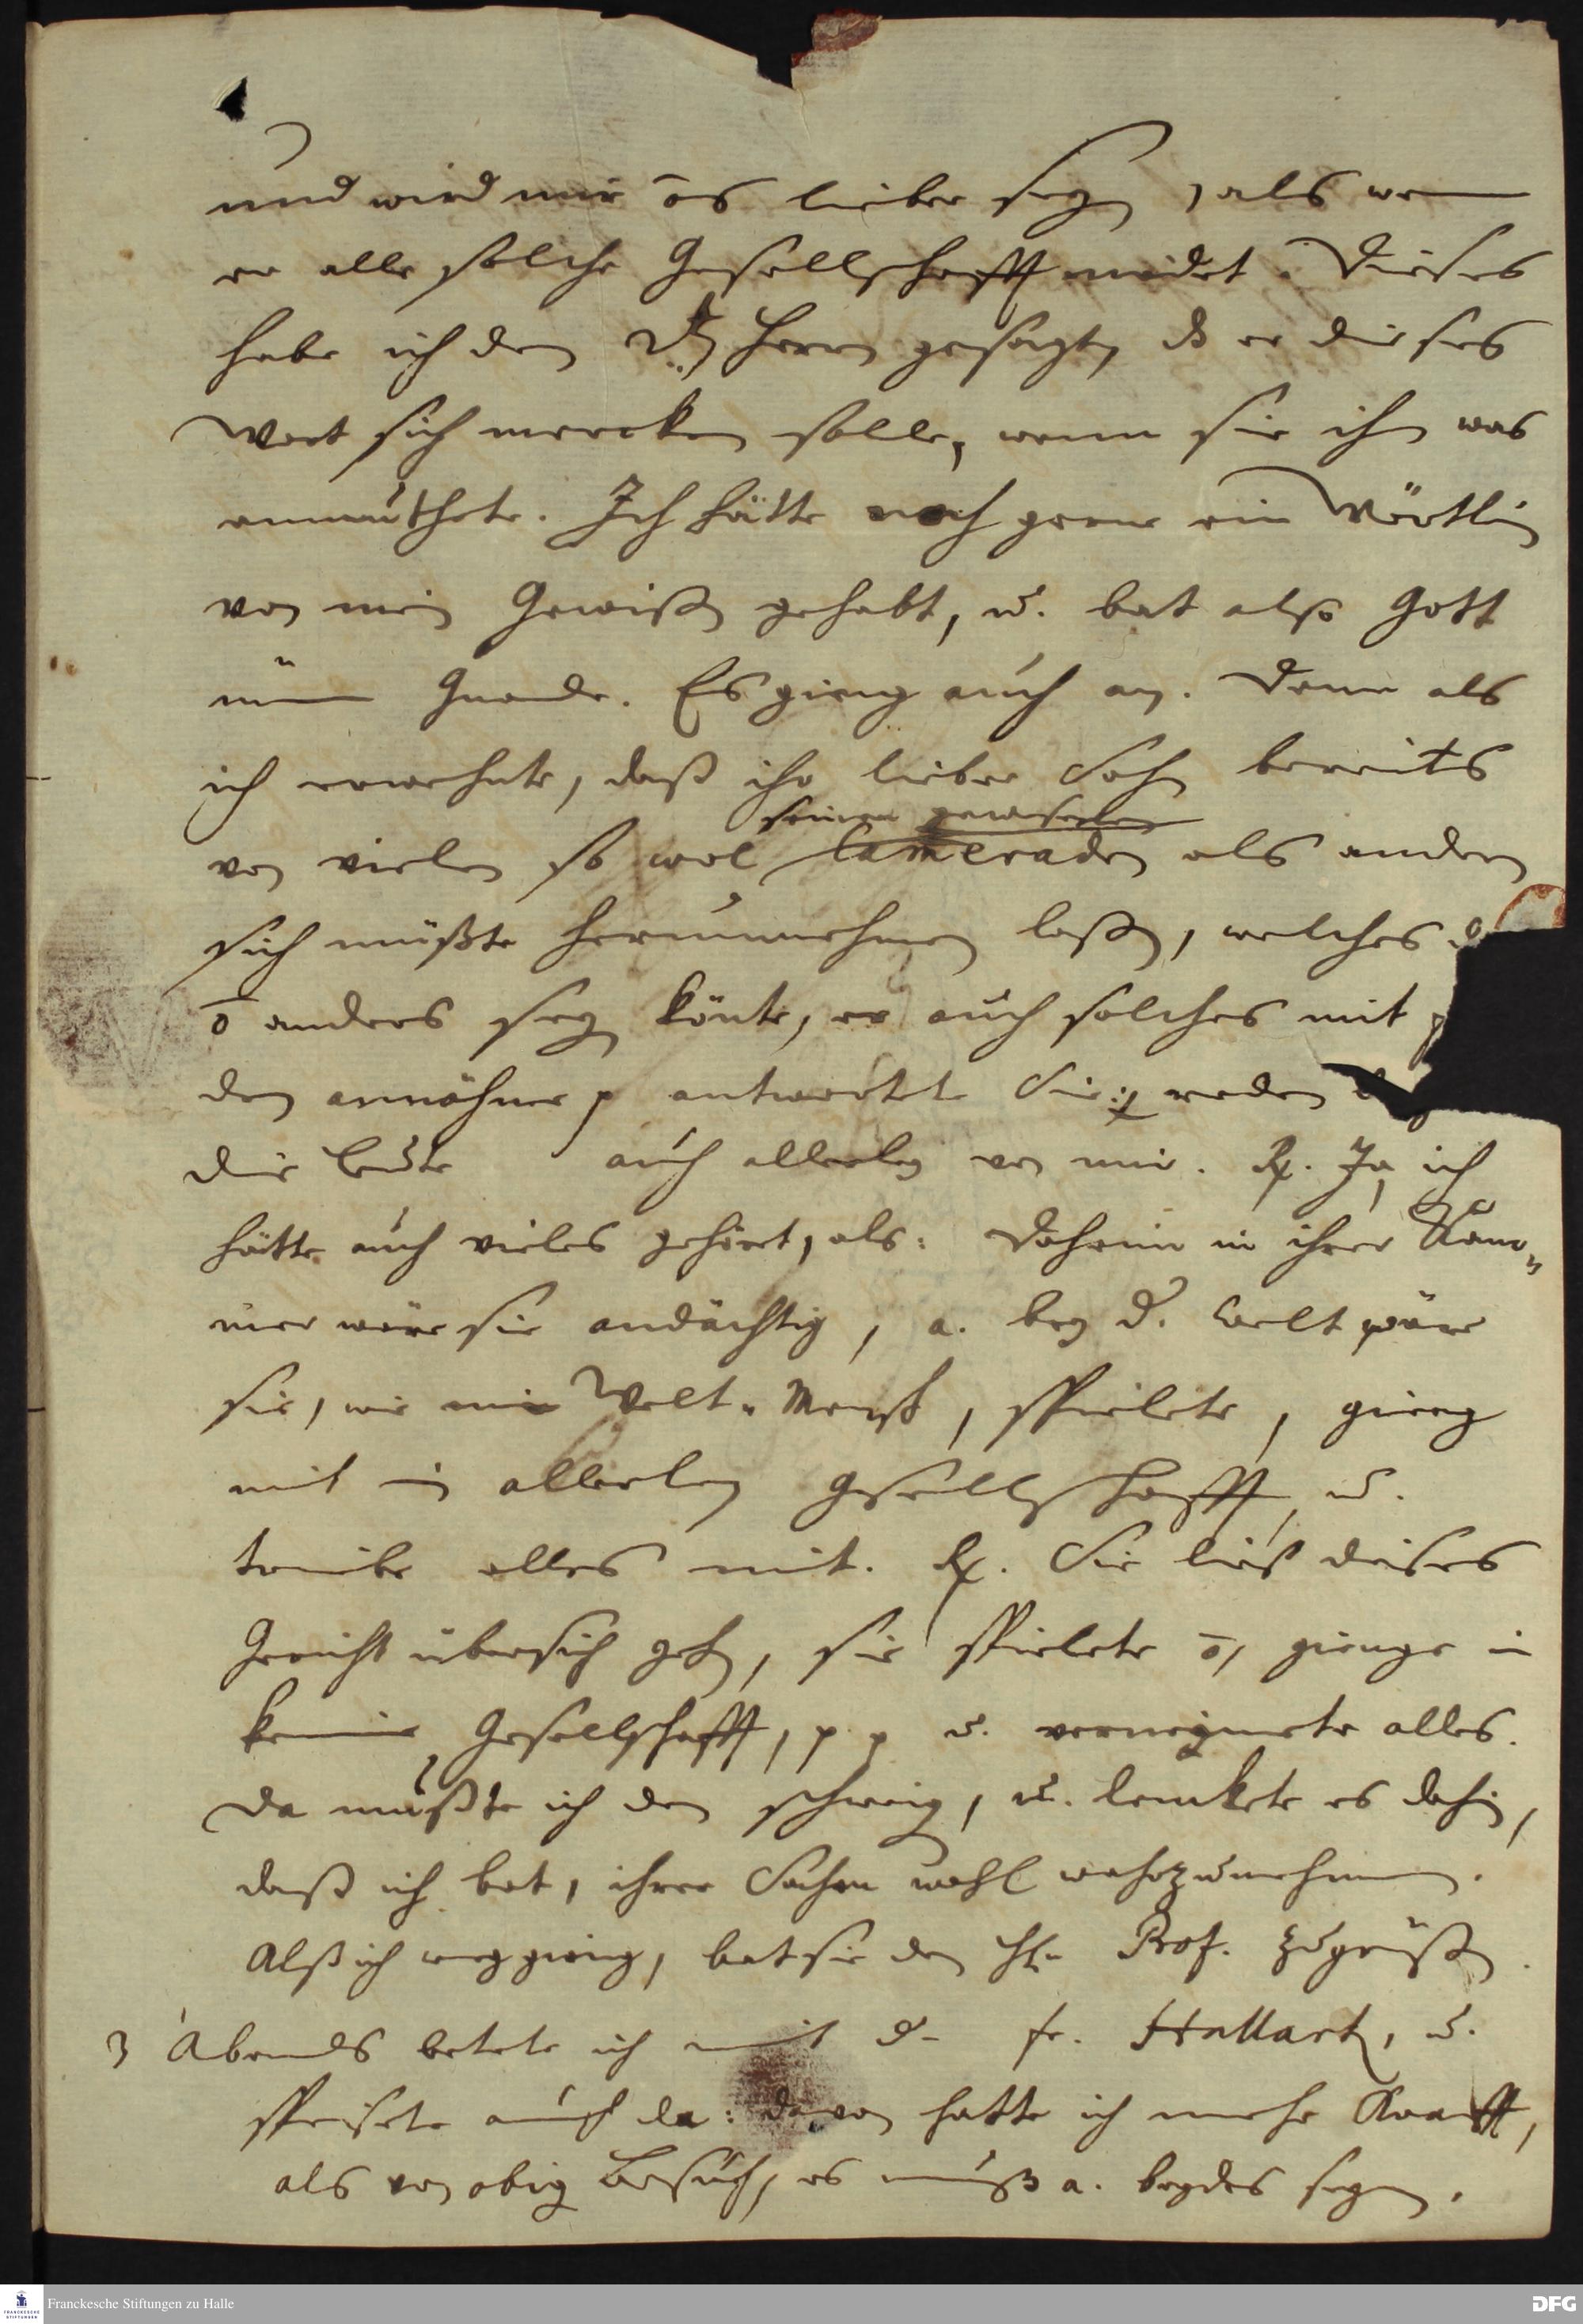 und wird mir ō es lieber seyn, als wenn
er alle solche Gesellschafft meidet. Dieses
habe ich den Herrn gesagt, dß er dieses
Wort sich mercken solle, wenn sie ihm was
anmuthete. Ich hätte noch gerne ein Wörtlein
von mein Gewißen gehabt, u. bat also Gott
üm Gnade. Es gieng auch an. Denn als
ich erwehnte, daß ihr lieber Sohn bereits
seinen gewesenen
von vielen so wol Cameraden als andern
sich müßte herumnehmen laßen, welches
ō anders seyn könte, er auch solches mit
den annähme p antwortete Sie: reden
die Leute auch allerley von mir. Rx. Ja, ich
hätte auch vieles gehöret, als: Daheim in ihrer Kam„
mer wäre sie andächtig, a. bey d. Welt wäre
sie, wie ein Welt-Mensch, spielete, gieng
mit in allerley Gesellschafft, u.
triebe alles mit. Rx. Sie ließ dieses
Gerücht über sich gehen, sie spielete ō, gienge in
keine Gesellschafft, p p u. verneynete alles.
Da mußte ich den schweigen, u. lenckete es dahin,
daß ich bat, ihrer Sachen wohl wahrzunehmen.
Alß ich weggieng, bat sie den H. Prof. zu grüßen.
3 Abends betete ich mit d. fr. Hallart, u.
speisete auch da: davon hatte ich mehr Krafft,
als von obigen Besuch, es muß a. beydes seyn.
Franckesche Stiftungen zu Halle
FRANCKESCHE STIFTUNGEN
DFG